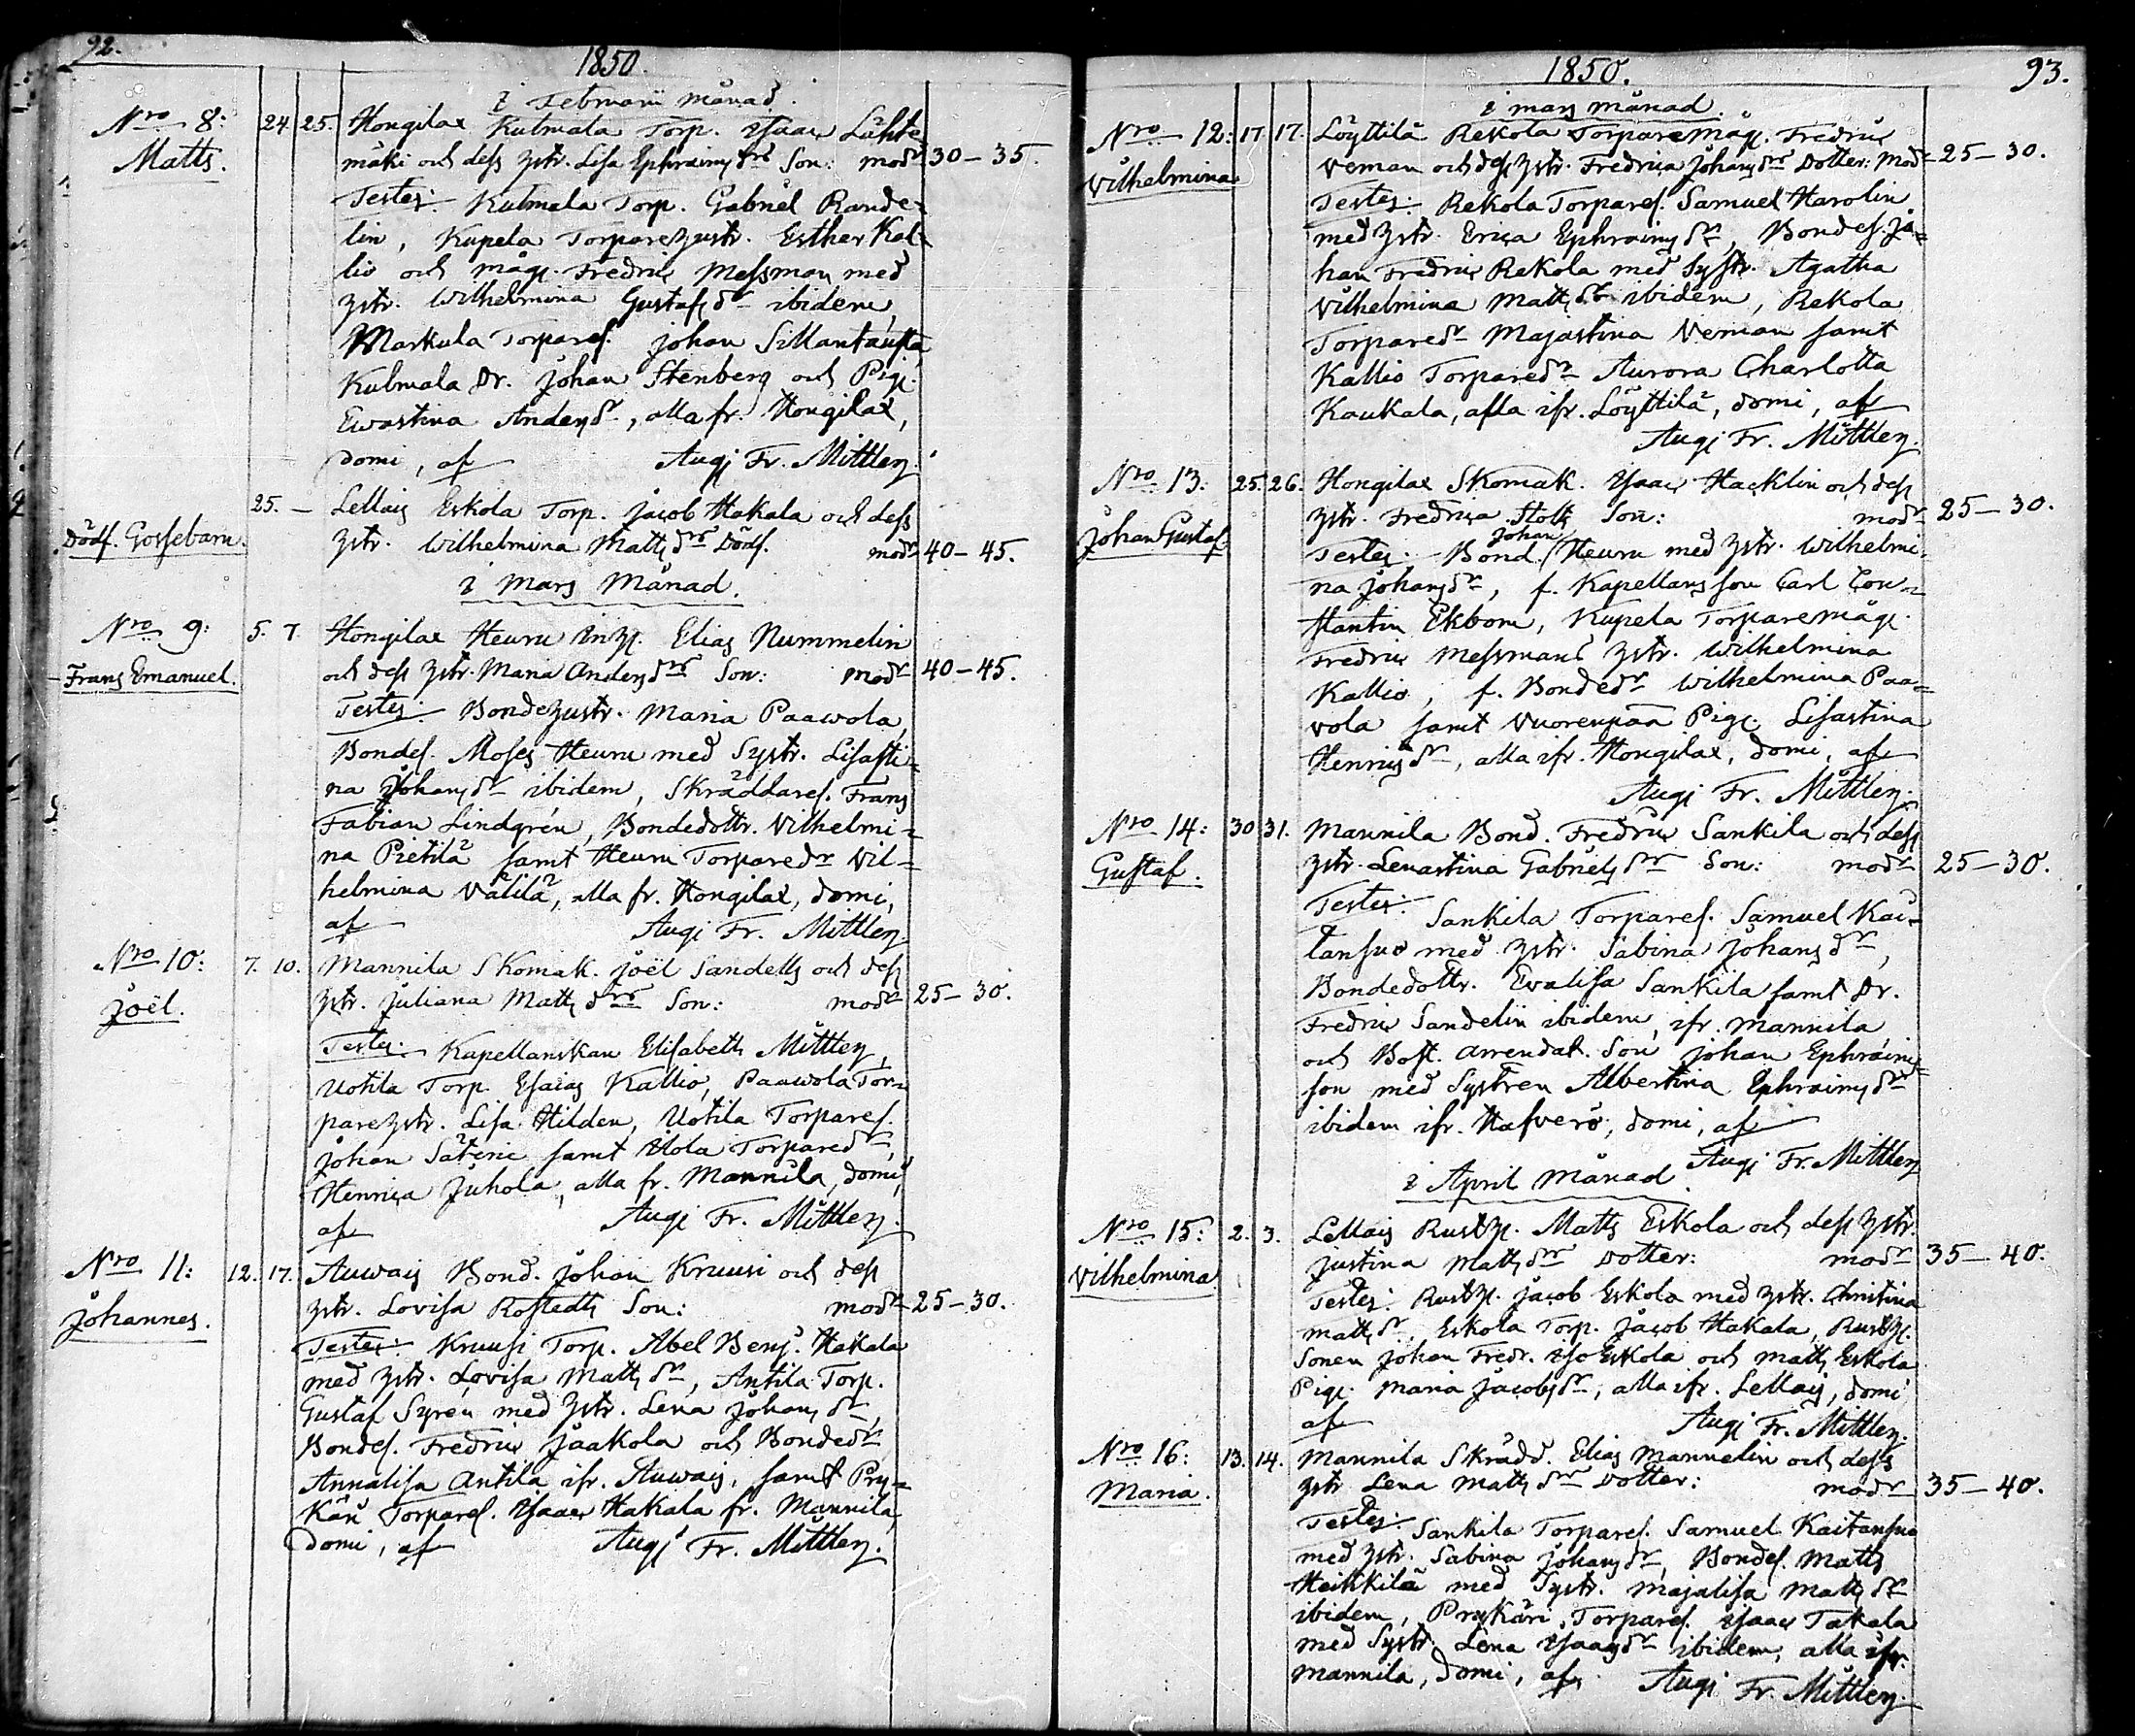 92.
1850.
i Februarii månad.
Nro 8: 24. 25. Hongilax Kulmala Torp. Isaac Lähte-
Matts. mäki och dess hstr. Lisa Ephraimsdrs Son: modr 30-35.
Testes: Kulmala Torp. Gabriel Rande-
lin, Kupela Torparehustr. Esther Kal-
lio och måg. Fredric Messman med
hstr. Wilhelmina Gustafsdr ibidem,
Markula Torpares. Johan Sillantausta
Kulmala Dr. Johan Stenberg och Pig.
Evastina Andersdr, alla fr. Hongilax,
domi, af Augi Fr. Mittler.
25. - Lellais Eskola Torp. Jacob Hakala och dess
Dödf. Gossebarn. hstr. Wilhelmina Mattsdrs Dödf. modr 40-45.
i Mars Månad.
Nro 9: 5. 7. Hongilax Heuru Inh. Elias Nummelin
Frans Emanuel. och dess hstr. Maria Andersdrs Son: modr 40-45.
Testes: Bondehustr. Maria Paawola,
Bondes. Moses Heuru med Systr. Lisasti-
na Johansdr ibidem, Skräddares. Frans
Fabian Lindgrén, Bondedottr. Vilhelmi-
na Pietilä samt Heuru Torparedr Vil-
helmina Välilä, alla fr. Hongilax, domi,
af Augi Fr. Mittler
Nro 10: 7. 10. Mannila Skomak. Joël Sandells och dess
Joël. hstr. Juliana Mattsdrs Son: modr 25-30.
Testes: Kapellanskan Elisabeth Mittler,
Uotila Torp. Esaias Kallio, Paawola Tor-
parehstr. Lisa Hilden, Uotila Torpares.
Johan Säteri samt Uola Torparedr,
Henrica Juhola, alla fr. Mannila, domi,
af Augi Fr. Mittler.
Nro 11: 12. 17. Auwais Bond. Johan Kruusi och dess
Johannes. hstr. Lovisa Rostedts Son: modr 25-30.
Testes: Kruusi Torp. Abel Benj. Hakala
med hstr. Lovisa Mattsdr, Antila Torp.
Gustaf Syrén med hstr. Lena Johansdr,
Bondes. Fredric Jaakola och Bondedr
Annalisa Antila ifr. Auwais, samt Pry-
käri Torpares. Isaac Hakala fr. Mannila,
domi, af Augi Fr. Mittler.
1850. 93.
i mars månad.
Nro 12: 17. 17. Löyttilä Rekola Torparemåg. Fredric
Vilhelmina Veman och dess hstr. Fredrica Johansdrs Dotter: Modr 25-30.
Testes: Rekola Torpares. Samuel Harolin
med hstr. Erica Ephraimsdr, Bondes. Jo-
han Fredric Rekola med Systr. Agatha
Vilhelmina Mattsdr ibidem, Rekola
Torparedr Majastina Veman samt
Kallio Torparedr Aurora Charlotta
Kaukala, alla ifr. Löyttilä, domi, af
Augi Fr. Mittler.
Nro 13: 25. 26. Hongilax Skomak. Isaac Hacklin och dess
Johan Gustaf. hstr. Fredrica Stolts Son: modr 25-30.
Testes: Bond. Johan Heuru med hstr. Wilhelmi-
na Johansdr, f. Kapellans son Carl Con-
stantin Ekbom, Kupela Torparemåg.
Fredric Messmans hstr. Wilhelmina
Kallio, f. Bondedr Wilhelmina Paa-
vola samt Vuorenpää Pig. Lisastina
Henricsdr, alla ifr. Hongilax, domi, af
Augi Fr. Mittler.
Nro 14: 30. 31. Mannila Bond. Fredric Sankila och dess
Gustaf. hstr. Lenastina Gabrielsdrs Son: modr 25-30.
Testes: Sankila Torpares. Samuel Kai-
tansuo med hstr. Sabina Johansdr,
Bondedottr. Evalisa Sankila samt Dr.
Fredric Sandelin ibidem, ifr. Mannila
och Bost. arrendat. Son Johan Ephraims-
son med Systren Albertina Ephraimsdr
ibidem ifr. Hafverö, domi, af
Augi Fr. Mittler
i April Månad.
Nro 15: 2. 3. Lellais Rusth. Matts Eskola och dess hstr.
Vilhelmina Justina Mattsdrs Dotter: modr 35-40.
Testes: Rusth. Jacob Eskola med hstr. Christina
Mattsdr, Eskola Torp. Jacob Hakala, Rusth.
Sonen Johan Fredr. Iso Eskola och Matts Eskola
Pig. Maria Jacobsdr, alla ifr. Lellais, domi
af Augi Fr. Mittler.
Nro 16: 13. 14. Mannila Skrädd. Elias Mannelin och dess
Maria. hstr Lena Mattsdrs Dotter: modr 35-40.
Testes: Sankila Torpares. Samuel Kaitansuo
med hstr. Sabina Johansdr, Bondes. Matts
Heikkilä med Systr. Majalisa Mattsdr
ibidem, Prykäri Torpares. Isaac Takala
med Systr. Lena Isaacsdr ibidem, alla ifr.
Mannila, domi, af Augi Fr. Mittler.